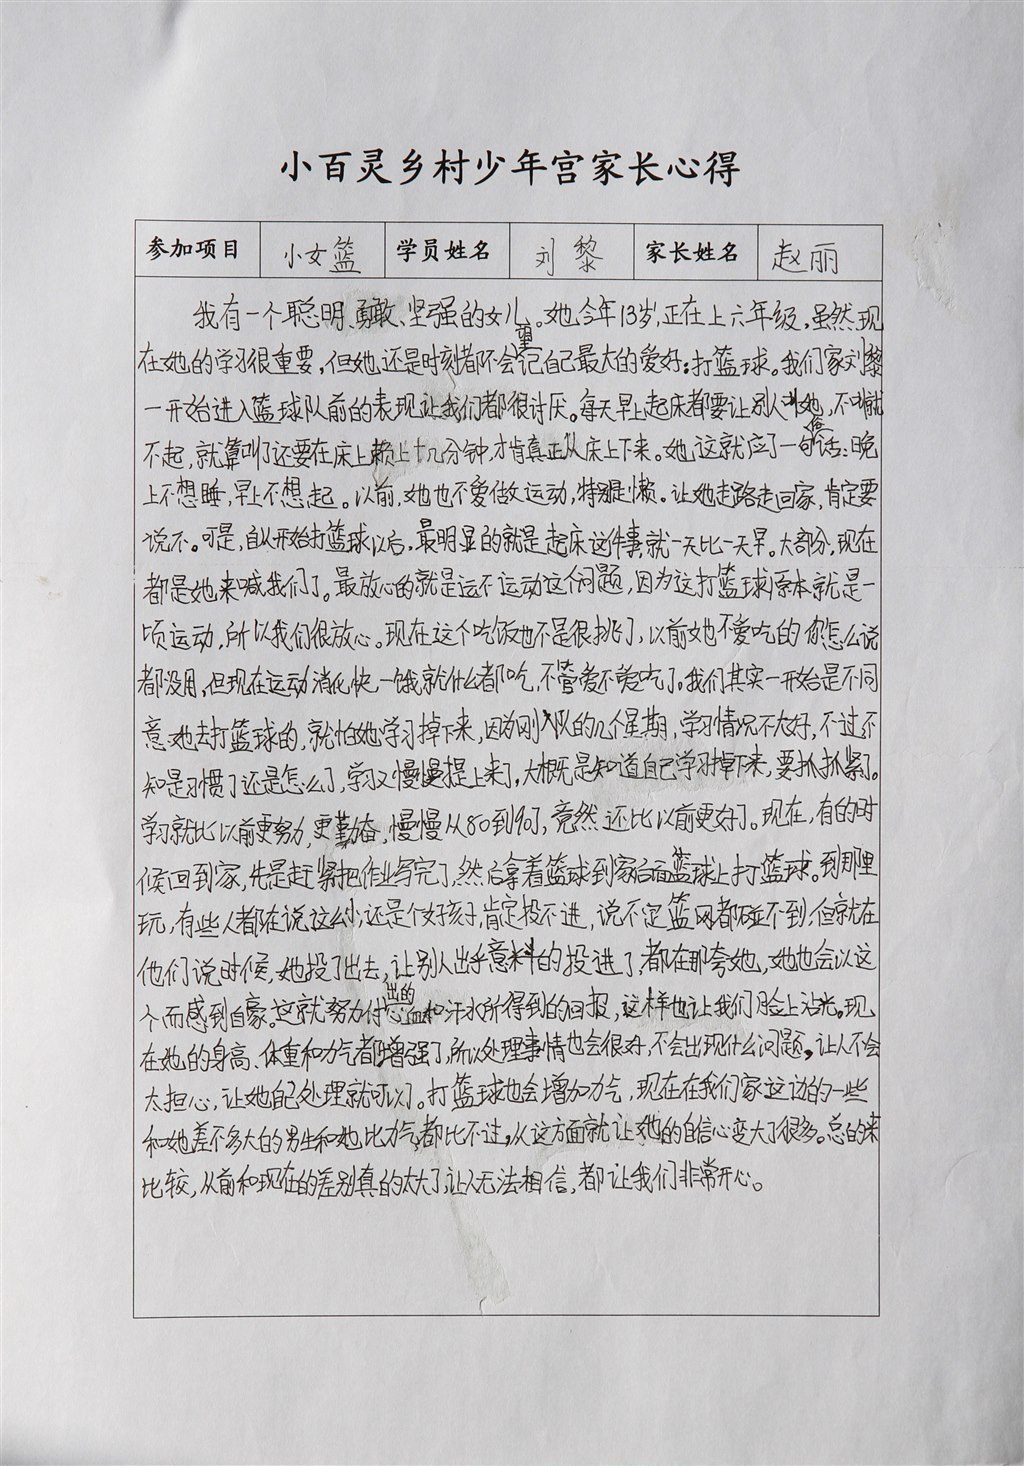 小百灵乡村少年宫家长心得
参加项目 小女篮 学员姓名 刘黎 家长姓名 赵丽
我有一个聪明、勇敢、坚强的女儿。她今年13岁,正在上六年级,虽然现
在她的学习很重要,但她还是时刻都不会望记自己最大的爱好:打篮球。我们家刘黎
一开始进入篮球队前的表现让我们都很讨厌。每天早上起床都要让别人叫她,不叫就
不起,就算叫了还要在床上赖上十几分钟,才肯真正从床上下来。她这就应了一句俗话:晚
上不想睡,早上不想起。以前,她也不爱做运动,特别是懒。让她走路走回家,肯定要
说不。可是,自从开始打篮球以后,最明显的就是起床这件事,就一天比一天早。大部分,现在
都是她来喊我们了。最放心的就是运不运动这个问题,因为这打篮球原本就是一
顷运动,所以我们很放心。现在这个吃饭也不是很挑了,以前她不爱吃的你怎么说
都没用,但现在运动消化快,一饿就什么都吃,不管爱不爱吃了。我们其实一开始是不同
意她去打篮球的,就怕她学习掉下来,因为刚入队的几个星期,学习情况不太好,不过不
知是习惯了还是怎么了,学习又慢慢提上来了。大概是知道自己学习掉下来,要抓抓紧了。
学习就比以前更努力,更勤奋,慢慢从80到90了,竟然还比以前更好了。现在,有的时
候回到家,先是赶紧把作业写完了,然后拿着篮球到家后面篮球上打篮球。到那里
玩,有些人都在说这么小,还是个女孩子,肯定投不进,说不定篮网都碰不到,但就在
他们说时候,她投了出去,让别人出乎意料的投进了,都在那夸她,她也会以这
个而感到自豪。这就努力付出的心血和汗水所得到的回报,这样也让我们脸上沾光。现
在她的身高、体重和力气都增强了,所以处理事情也会很好,不会出现什么问题,让人不会
太担心,让她自己处理就可以了。打篮球也会增加力气,现在在我们家这边的一些
和她差不多大的男生和她比力气,都比不过,从这方面就让她的自信心变大了很多。总的来
比较,从前和现在的差别真的太大了,让人无法相信,都让我们非常开心。